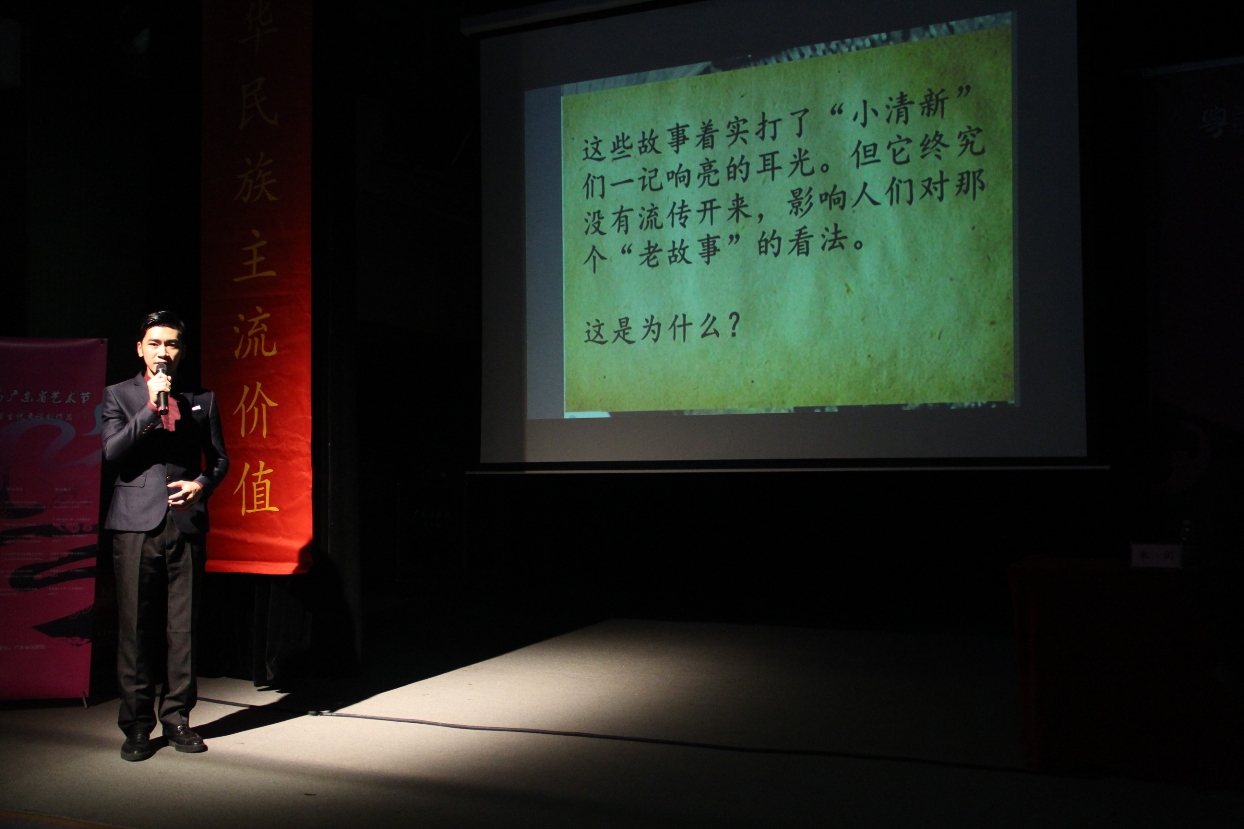 华民族主流价值
这些故事着实打了“小清新”
们一记响亮的耳光。但它终究
没有流传开来，影响人们对那
个“老故事”的看法。
这是为什么？
广东省艺术节
粤